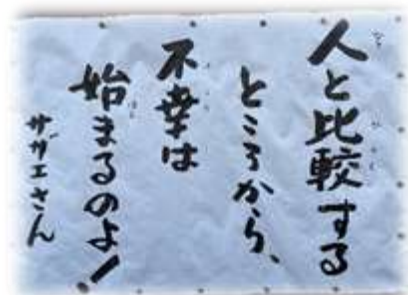 人と比較する
ところから、
不幸は
始まるのよ!
サザエさん